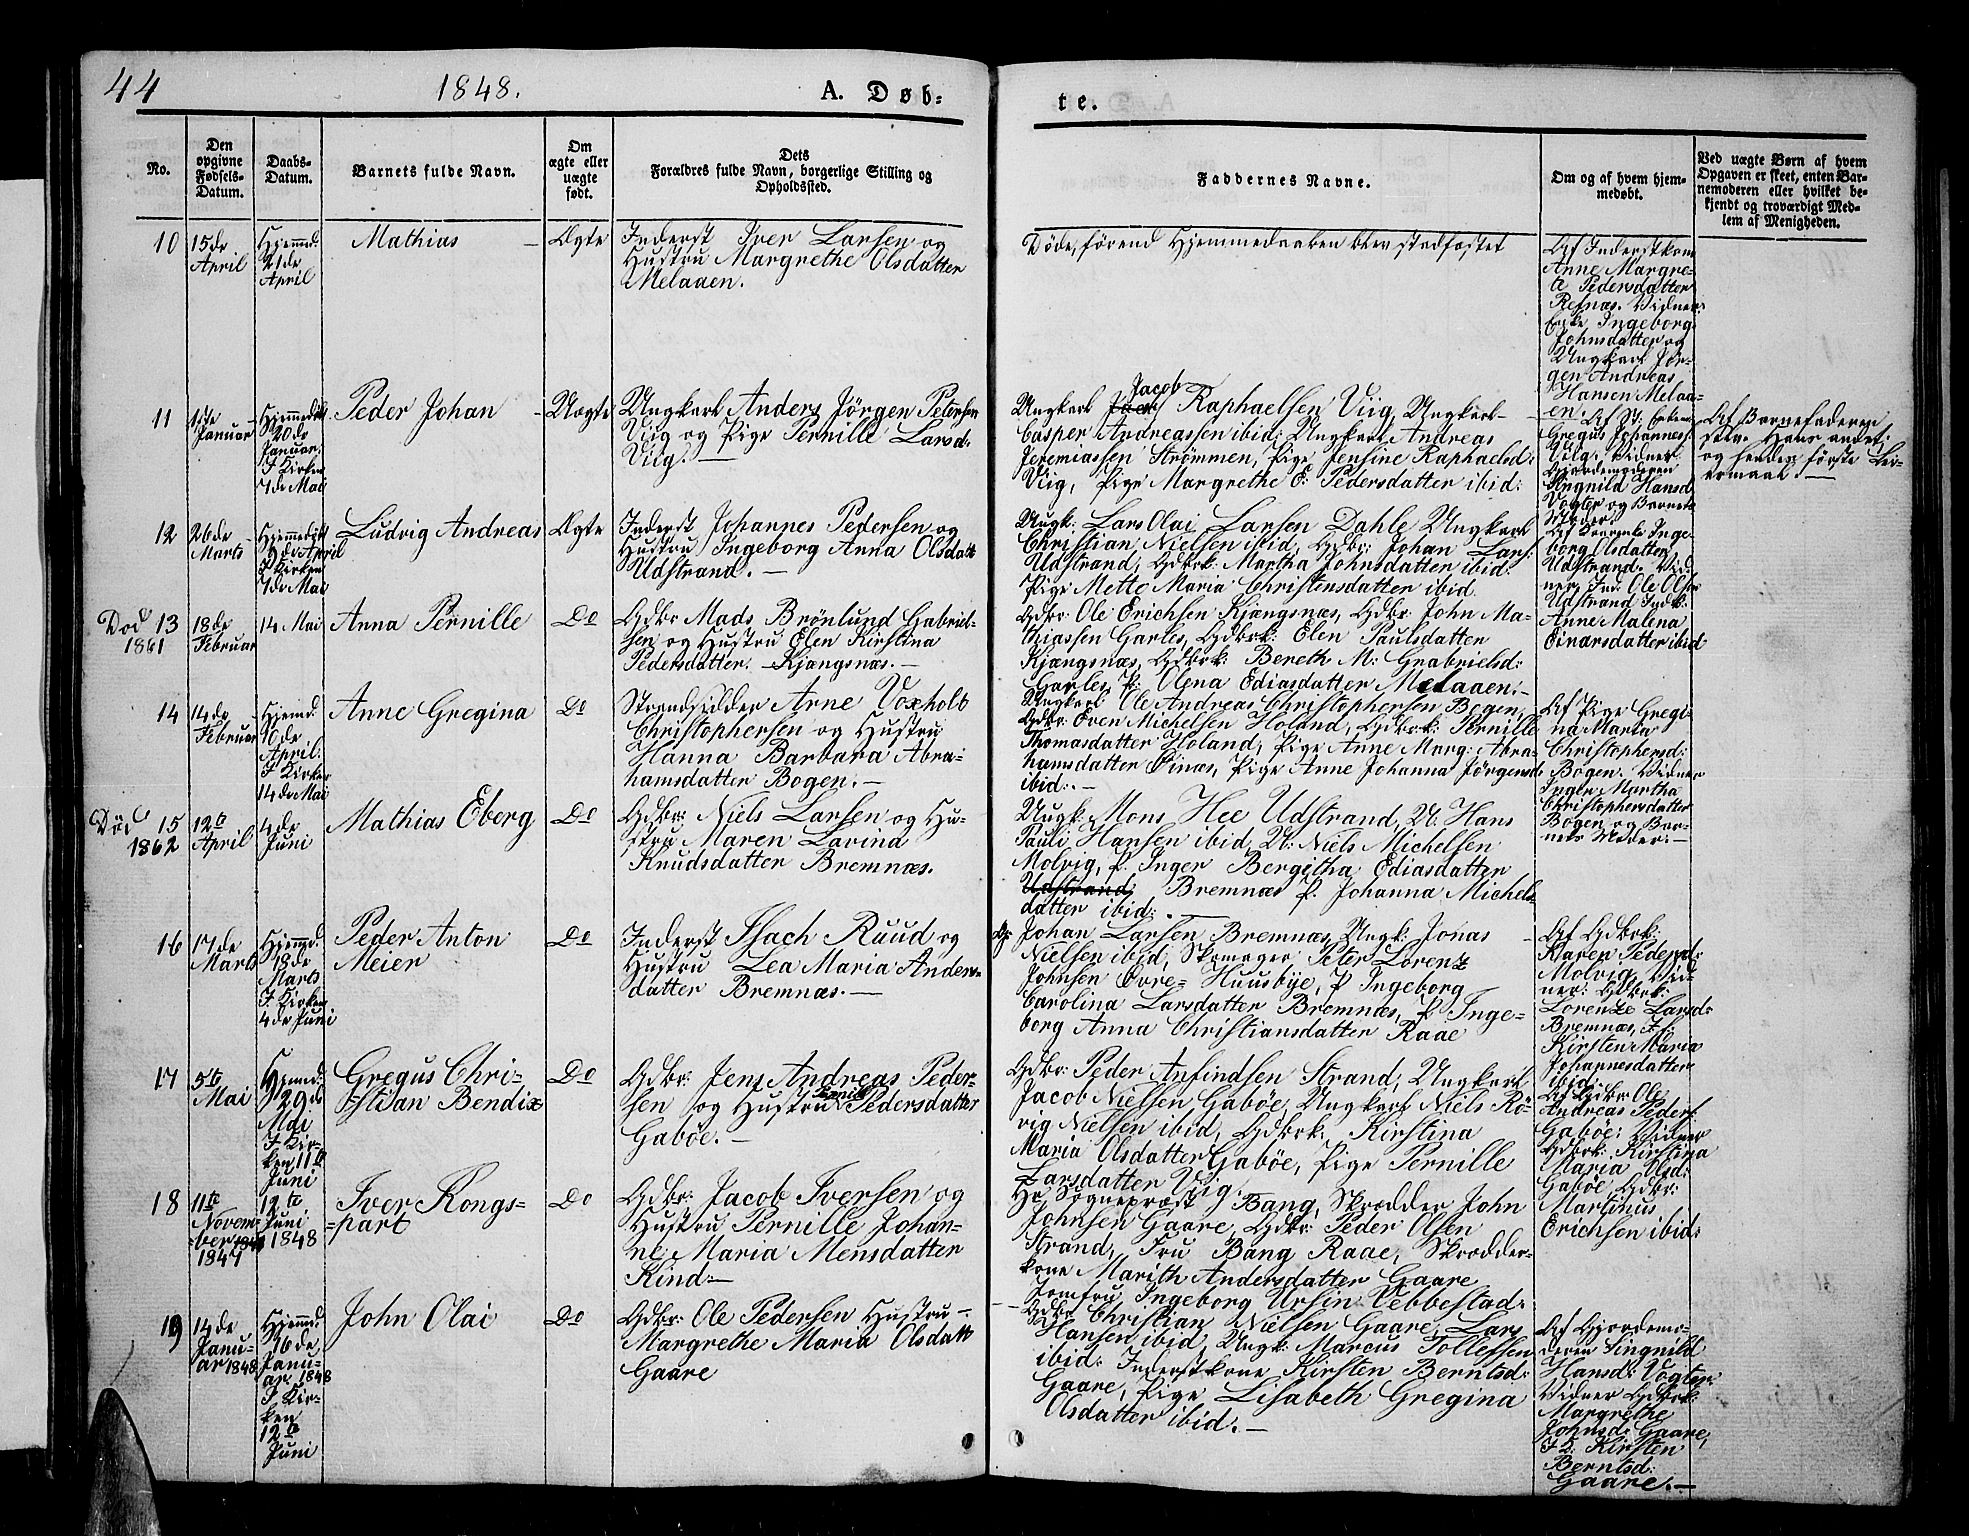 44
1848.
A. Døb=
te.
No.
Den
opgivne
Fødsels-
Datum.
Daabs-
Datum.
Barnets fulde Navn.
Om
ægte eller
uægte
født.
Dets
Forældres fulde Navn, borgerlige Stilling og
Opholdsted.
Faddernes Navne.
Om og af hvem hjem-
medøbt.
Ved uægte Børn af hvem
Opgaven er skeet, enten Bar-
nemoderen eller hvilket be-
kjendt og troværdigt Med-
lem af Menigheden.
10
15de
April
Hjemmed:
21de
April
Mathias
Ægte
Inderst Iver Larsen og
Hustru Margrethe Olsdatter
Melaaen.
Døde, førend Hjemmedaaben blev stadfæstet
Af Inderstkone
Anne Margre-
ta Pedersdatter
Refnæs. Vidner:
Enke Ingeborg
Johnsdatter og
Ungkarl Jør-
gen Andreas
Hansen Melaa-
en.
11
Januar
Hjemmedøbt
20de
Januar.
I Kirken
7de Mai
Peder Johan
Uægte
Ungkarl Anders Jörgen Petersen
Viig og Pige Pernille Larsd:
Viig.
Jacob
Ungkarl Raphaelsen Viig, Ungkarl
Casper Andreassen ibid: Ungkarl Andreas
Jeremiassen Strömmen, Pige Jensine Raphaelsd:
Viig, Pige Margrethe E: Pedersdatter ibid:
Gregus Johannes:
Viig. Vidner
Gjordemoderen
Singnild Hansd:
Vogter og Barnets
Moder.
Af Barnefaderen
selv. Hans andet
og hendes første Lei-
ermaal.
12
26de
Marts
Hjemmedøbt
9de April
I Kirken
7de Mai
Ludvig Andreas
Ægte
Inderst Johannes Pedersen og
Hustru Ingeborg Anna Olsdatt
Udstrand.
Ungk: Lars Olai Larsen Dahle Ungkarl
Christian Nielsen ibid, Gdbr: Johan Lars:
Udstrand, Gdbrk: Martha Johnsdatter ibid:
Pige Mette Maria Christensdatter ibid.
Inge-
borg Olsdatter
Udstrand. Vid
ner, Ind: Ole Ols:
Udstrand Indk:
Anne Malena
Einarsdatter ibid
Død
1861
13
18de
Februar
14 Mai
Anna Pernille
Do
Gdbr: Mads Brönlund Gabriel-
sen og Hustru Elen Kirstina
Pedersdatter. Kjængsnæs.
Gdbr: Ole Erichsen Kjængsnæs, Gdbr: John Ma-
thiassen Garles, Gdbrk: Elen Paulsdatter
Kjængsnæs, Gdbrk: Bereth M: Grabrielsd:
Garles, P: Olena Ediasdatter Melaaen:
14
14de
Februar
Hjemd:
10de
April:
I Kirken
14de Mai
Anne Gregina
Do
Strandsidder Arne Voxholt
Christophersen og Hustru
Hanna Barbara Abra-
hamsdatter Bogen.
Ungkarl Ole Andreas Christophersen Bogen,
Gdbr: Even Michelsen Holand, Gdbrk: Pernille
Thomasdatter Holand, Pige Anne Marg: Abra
hamsdatter Öinæs, Pige Anne Johanna Jörgensd:
ibid:
Af Pige Gregi
na Maria
Christophersd:
Bogen. Vidner
Inger Martha
Christophersdatter
Bogen og Bar-
nets Moder:
Død
1862
15
12te
April
4de
Juni
Mathias Eberg
Do
Gdbr: Niels Larsen og Hu-
stru Maren Lavina
Knudsdatter Bremnæs.
Ungk: Mons Hee Udstrand, U: Hans
Pauli Hansen ibid, U: Niels Michelsen
Molvig, P. Inger Bergitha Ediasdatter
Udstrand: Bremnæs P. Johanna Michels
datter ibid:
16
17de
Marts
Hjemmed:
18de
Marts
I Kirken
4de Juni
Peder Anton
Meier
Do
Inderst Isach Ruud og
Hustru Lea Maria Anders-
datter Bremnæs.
G: Johan Larsen Bremnæs, Ungk: Jonas
Nielsen ibid, Skomager Peter Lorenz
Johnsen Øvre=Huusbye, P Ingeborg
Carolina Larsdatter Bremnæs, P. Inge-
borg Anna Christiansdatter Raae
Af Gdbrk:
Karen Pedersd:
Molvig, Vid-
ner: Gdbrk:
Lorenze Larsd:
Bremnæs, I:
Kirsten Maria
Johannesdatter
ibid:
17
5te
Mai
Hjemd:
29de
Mai
I Kir-
ken 11te
Juni
Gregus Chri-
stian Bendix
Do
Gdbr: Jens Andreas Peder-
sen og Hustru Pedersdatter
Gaböe.
Gdbr: Peder Anfindsen Strand, Ungkarl
Jacob Nielsen Gaböe, Ungkarl Niels Rö-
vig Nielsen ibid, Gdbrk: Kirstina
Maria Olsdatter Gaböe, Pige Pernille
Larsdatter Viig.
Af Gdbr: Ole
Andreas Peders:
Gaböe: Vidner
Gdbrk: Kirstina
Maria Olsd:
Gaböe, Gdbr:
Martinus
Erichsen ibid:
18
11te
Novem-
ber
1847
12te
Juni
1848
Iver Kongs-
part
Do
Gdbr: Jacob Iversen og
Hustru Pernille Johan-
ne Maria Mensdatter
Kind:
Hr Sognepræst Bang, Skrædder John
Johnsen Gaare, Gdbr: Peder Olsen
Strand, Fru Bang Raae, Skrædder-
kone Marith Andersdatter Gaare
Jomfru Ingeborg Ursin Vebbestad:
19
14de
Janu-
ar 1848
Hjemmd:
16de
Janu-
ar 1848
I Kir-
ken
12te
Juni
John Olai
Do
Gdbr: Ole Pedersen Hustru
Margrethe Maria Olsdatt
Gaare
Gdbr: Christian Nielsen Gaare, Lars
Hansen ibid, Ungk: Marcus Tollefsen
ibid: Inderstkone Kirsten Berntsd:
Gaare, Pige Lisabeth Gregina
Olsdatter ibid.
Af Gjordemo-
deren Singnild
Hansd: Vogter
Vidner Gdbrk:
Margrethe
Johnsd: Gaare,
Kirsten
Berntsd:
Gaare.